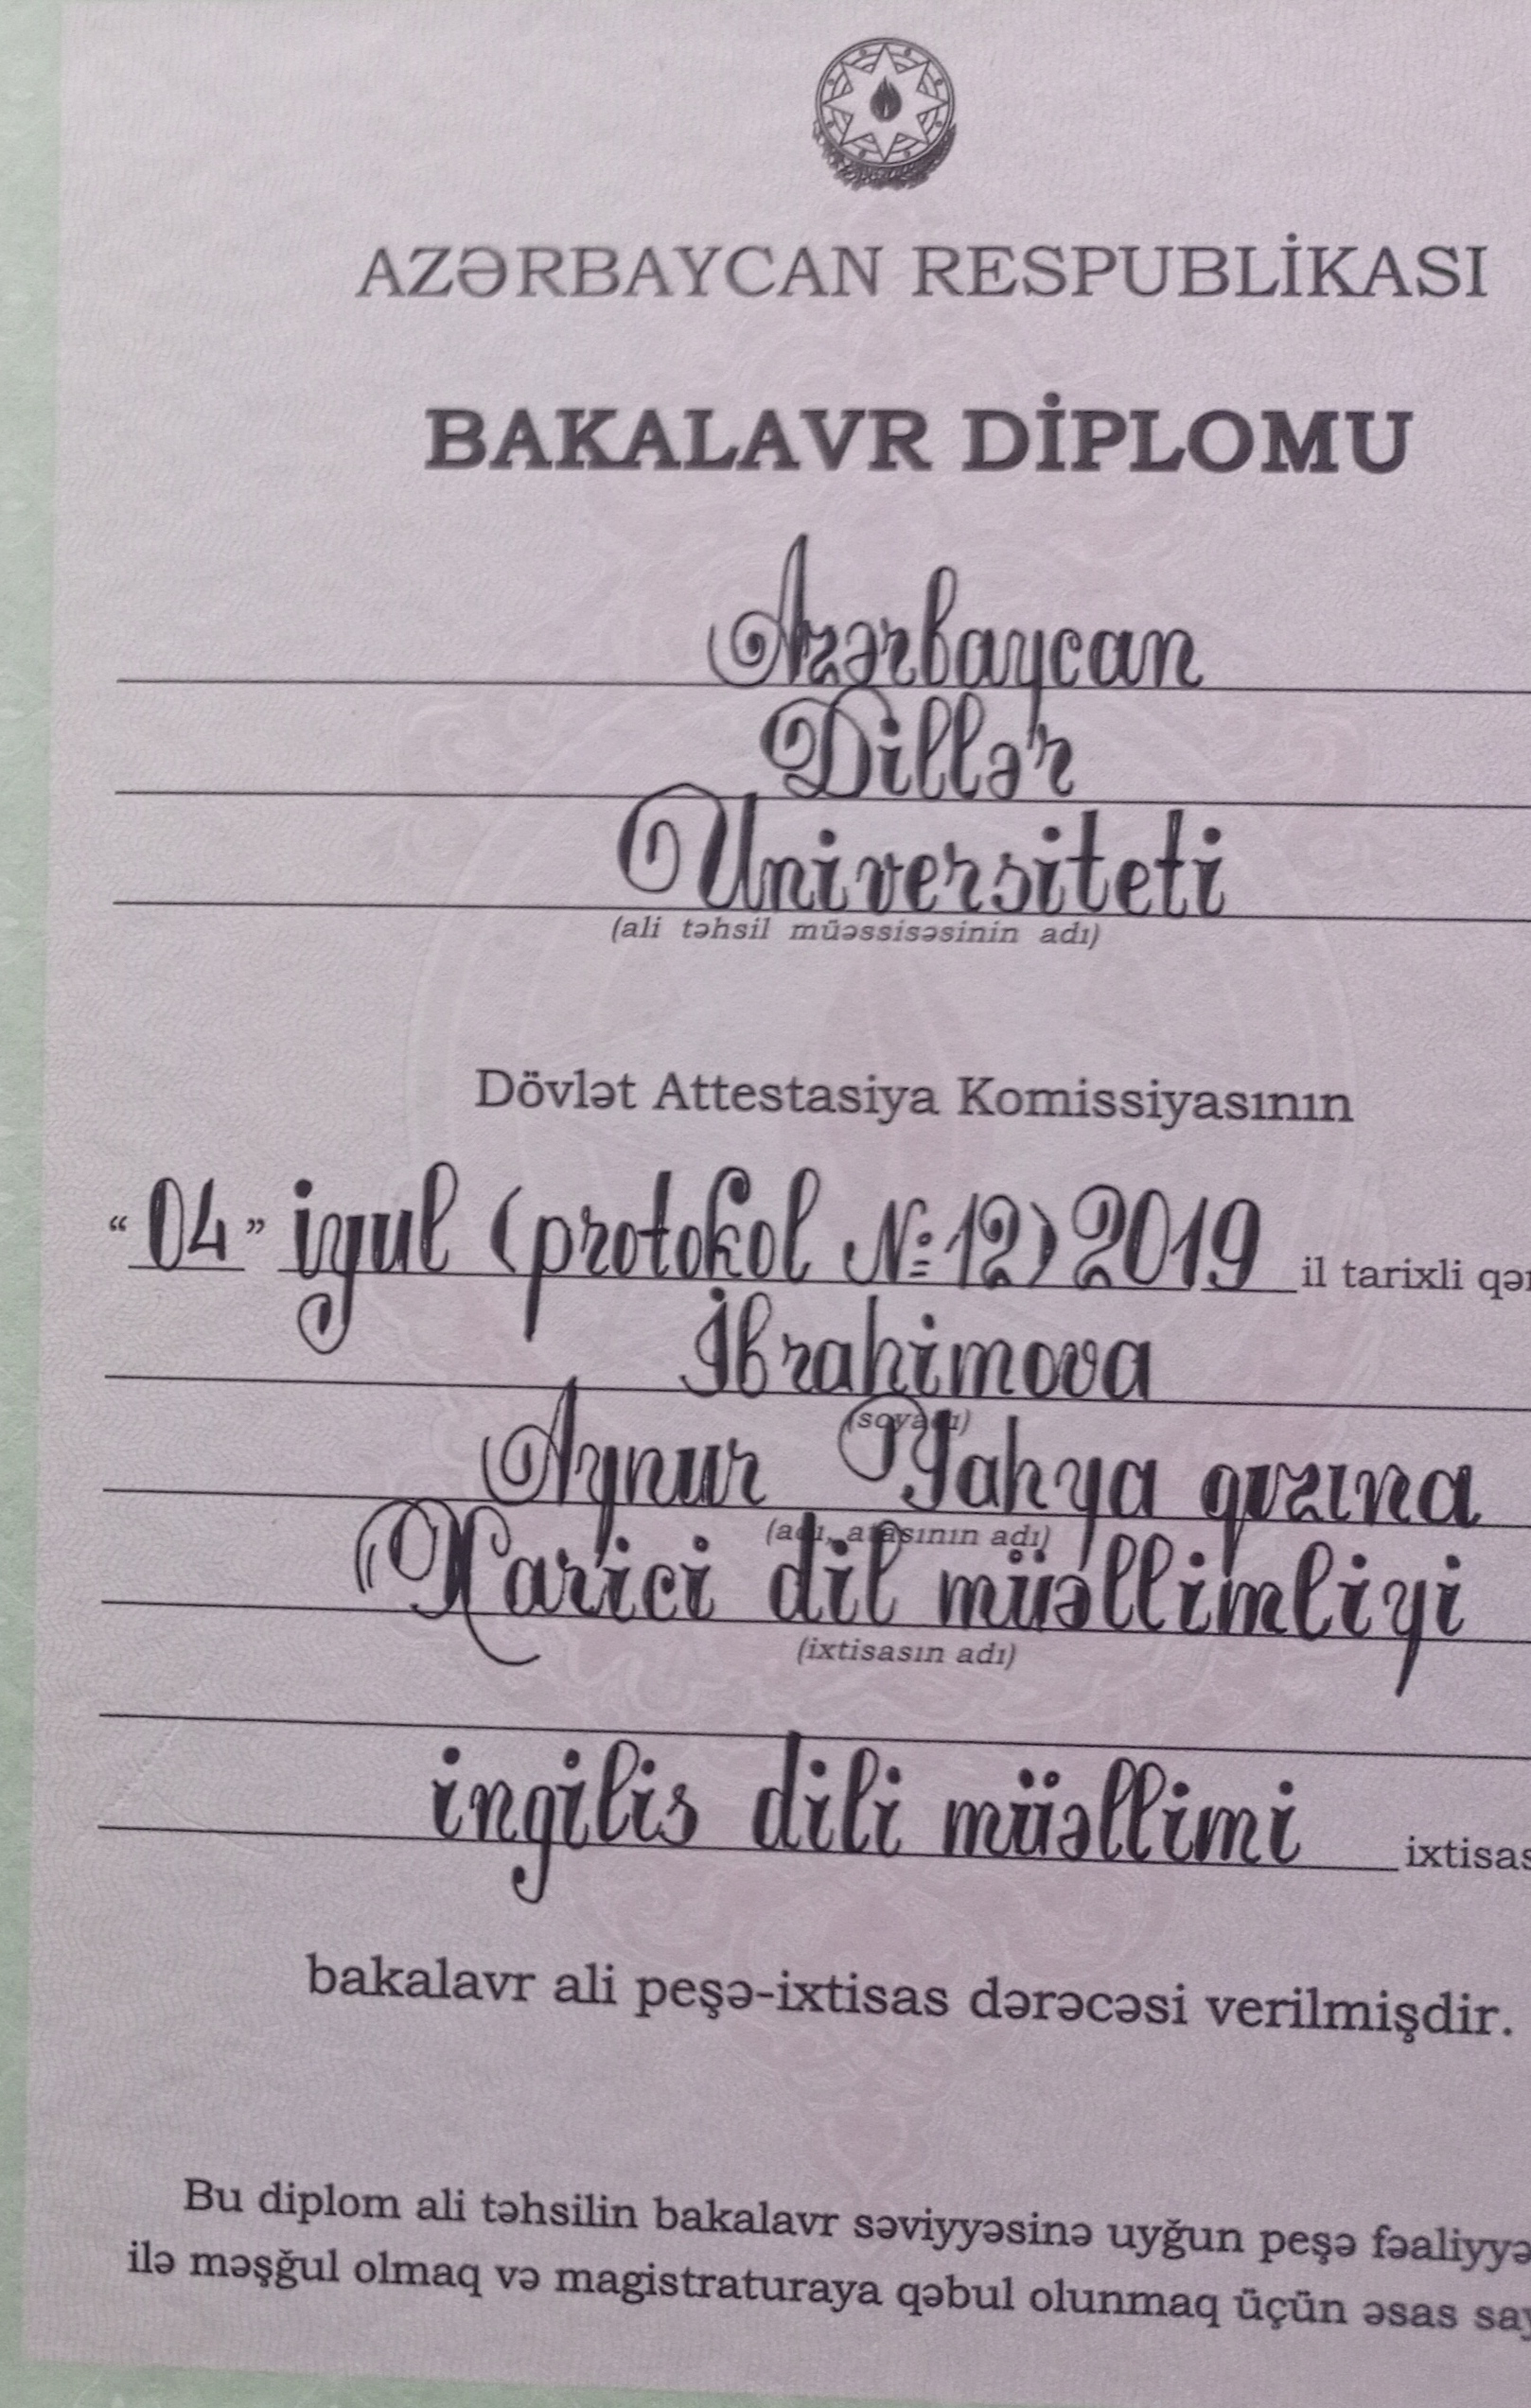 AZƏRBAYCAN RESPUBLİKASI
BAKALAVR DİPLOMU
Azərbaycan
Dillər
Universiteti
(ali təhsil müəssisəsinin adı)
Dövlət Attestasiya Komissiyasının
“04” iyul (protokol №12) 2019 il tarixli
İbrahimova
(soyadı)
Aynur Yahya qızına
(adı, atasının adı)
Xarici dil müəllimliyi
(ixtisasın adı)
ingilis dili müəllimi
bakalavr ali peşə-ixtisas dərəcəsi verilmişdir.
Bu diplom ali təhsilin bakalavr səviyyəsinə uyğun peşə
ilə məşğul olmaq və magistraturaya qəbul olunmaq üçün əsas